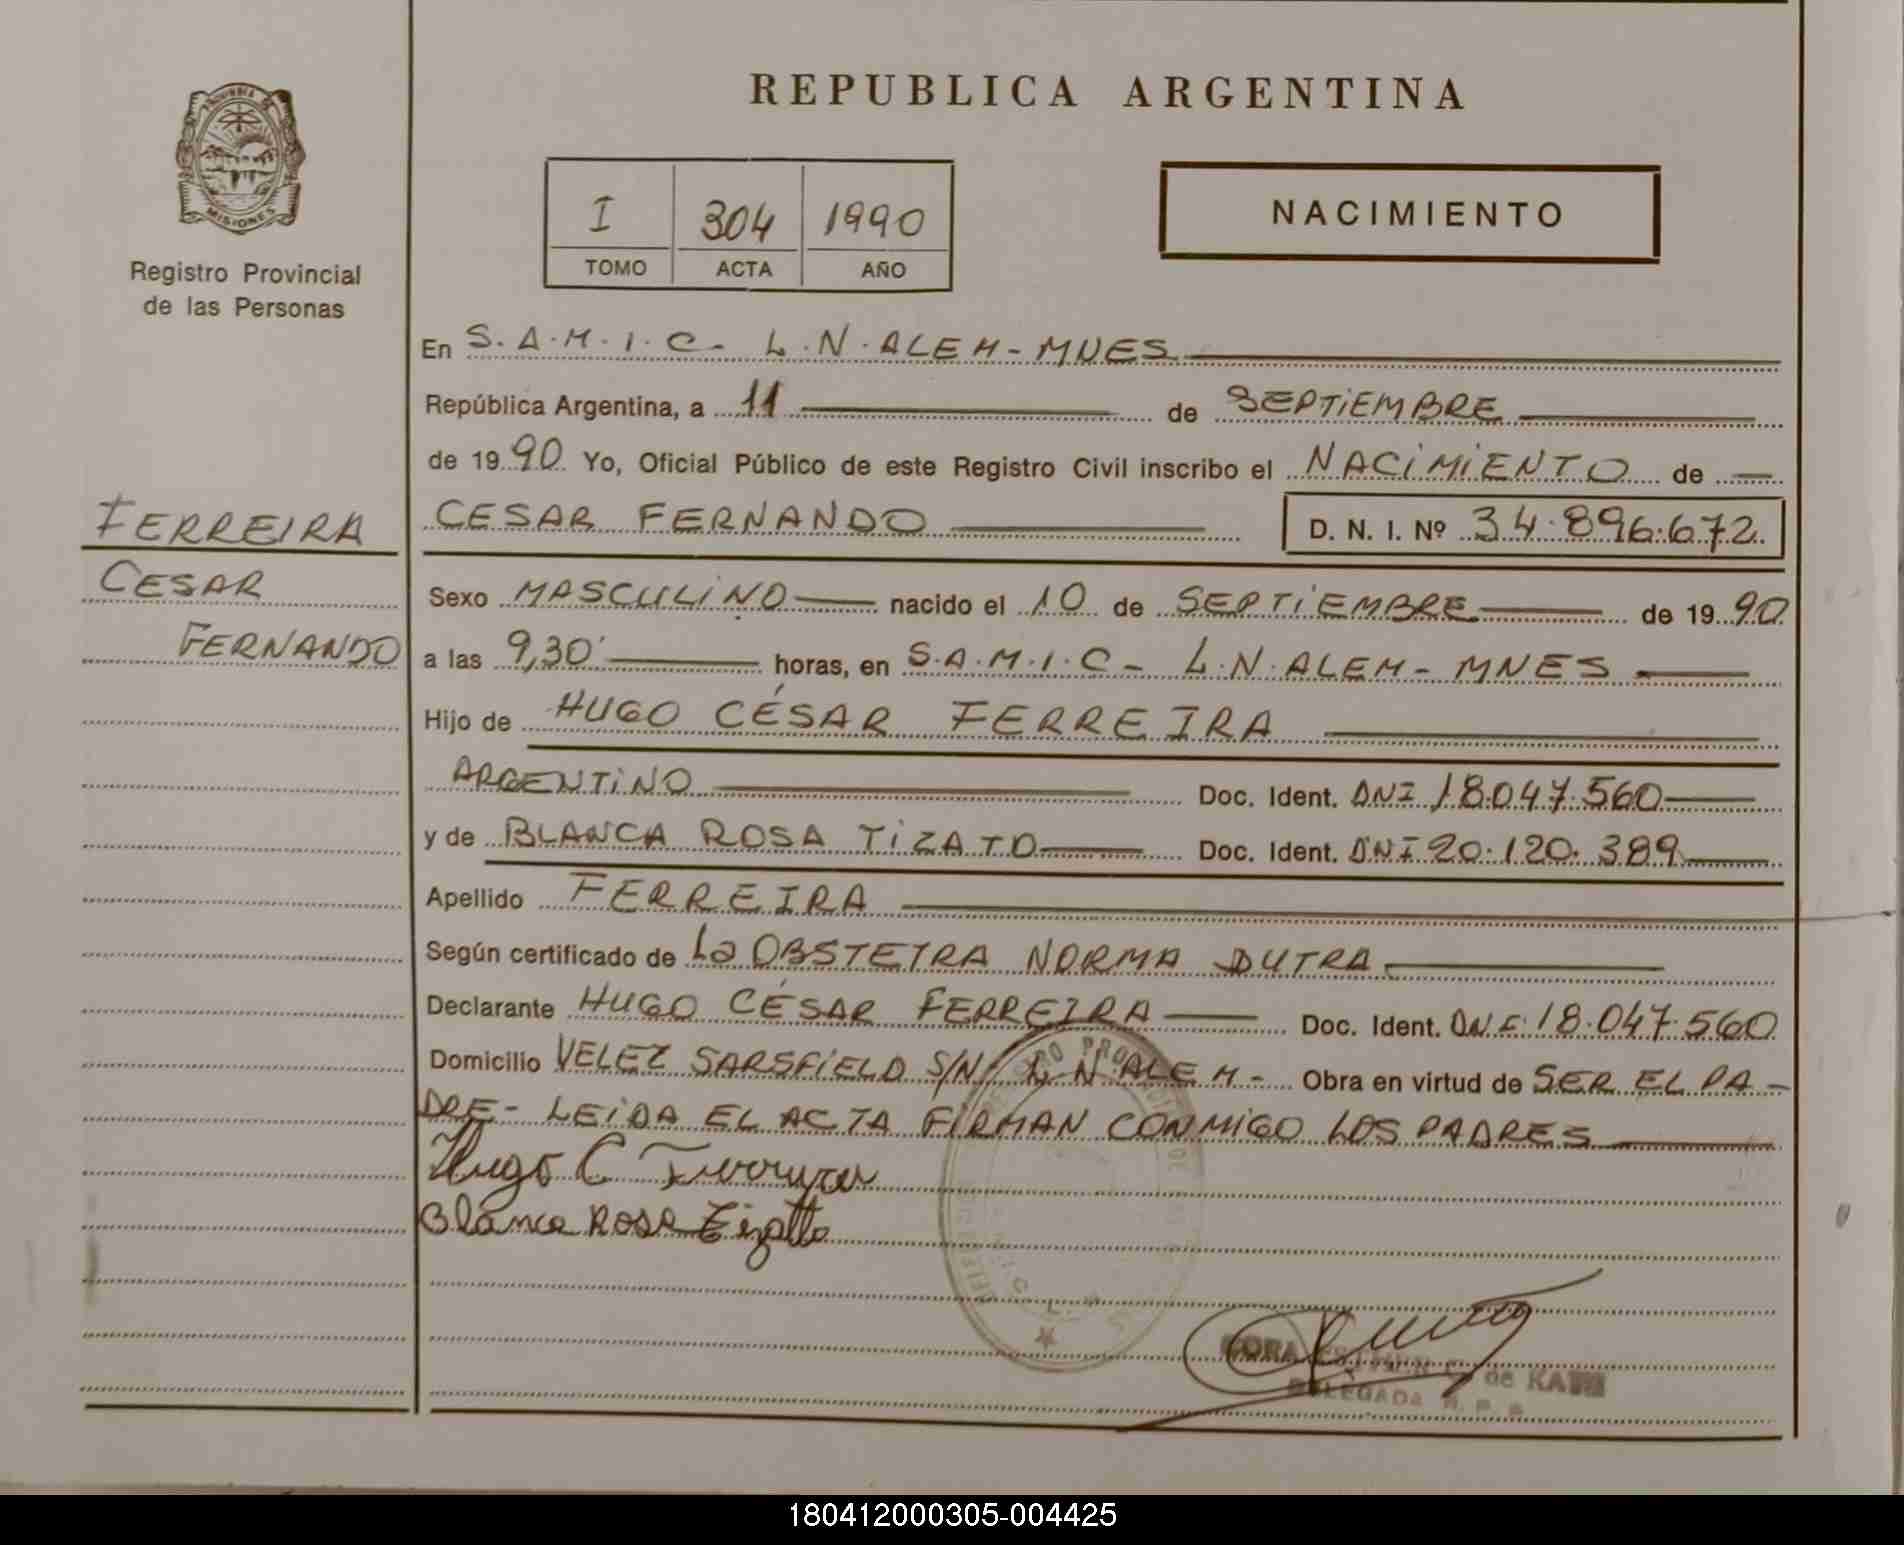 REPUBLICA ARGENTINA
PROVINCIA DE
MISIONES
Registro Provincial
de las Personas
I 304 1990
TOMO ACTA AÑO
NACIMIENTO
En S.A.M.I.C- L.N.ALEM-MNES
República Argentina, a 11 de SEPTIEMBRE
de 1990 Yo, Oficial Público de este Registro Civil inscribo el NACIMIENTO de
FERREIRA
CESAR
FERNANDO
CESAR FERNANDO D. N. I. Nº 34.896.672
Sexo MASCULINO nacido el 10 de SEPTIEMBRE de 1990
a las 9,30' horas, en S.A.M.I.C- L.N.ALEM-MNES
Hijo de HUGO CÉSAR FERREIRA
ARGENTINO Doc. Ident. DNI 18.047.560
y de BLANCA ROSA TIZATO Doc. Ident. DNI 20.120.389
Apellido FERREIRA
Según certificado de La OBSTETRA NORMA DUTRA
Declarante HUGO CÉSAR FERREIRA Doc. Ident. DNI 18.047.560
Domicilio VELEZ SARSFIELD S/N L.N.ALEM- Obra en virtud de SER EL PA-
DRE- LEIDA EL ACTA FIRMAN CONMIGO LOS PADRES
Hugo C Ferreyra
Blanca Rosa Tizatto
de KAUS
DELEGADA R. P. P.
180412000305-004425